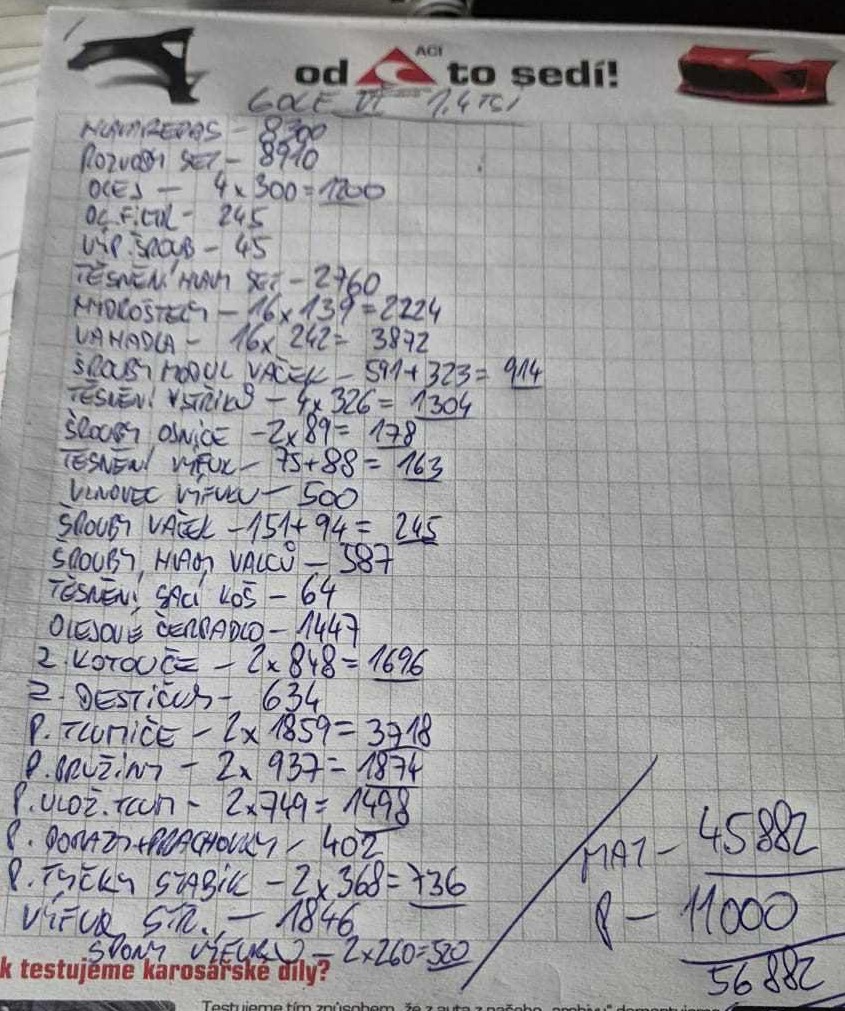 ACI
od to sedí!
GOLF VI 1.4 TSI
8300
ROZVODY SET - 8910
OLEJ - 4 x 300 = 1200
OL. FILTR - 245
VYP. ŠROUB - 45
TĚSNĚNÍ HLAVY SET - 2760
HYDROŠTELY - 16 x 139 = 2224
VAHADLA - 16 x 242 = 3872
ŠROUBY MODUL VAČEK - 591 + 323 = 914
TĚSNĚNÍ VSTŘIKŮ - 4 x 326 = 1304
ŠROUBY OJNICE - 2 x 89 = 178
TĚSNĚNÍ VÝFUK - 75 + 88 = 163
VLNOVEC VÝFUKU - 500
ŠROUBY VAČEK - 151 + 94 = 245
ŠROUBY HLAVY VALCŮ - 587
TĚSNĚNÍ SACÍ KOŠ - 64
OLEJOVÉ ČERPADLO - 1447
Z. KOTOUČE - 2 x 848 = 1696
Z. DESTIČKY - 634
P. TLUMIČE - 2 x 1859 = 3718
P. PRUŽINY - 2 x 937 = 1874
P. ULOŽ. TLUM - 2 x 749 = 1498
P. DORAZY + PRACHOVKY - 402
P. TYČKY STABIK - 2 x 368 = 736
VÝFUK STR. - 1846
SPONY VÝFUKU - 2 x 260 = 520
MAT - 45882
P - 11000
56882
k testujeme karosářské díly?
Testujeme tím způsobem, že z auta z našeho „archivu" demontujeme